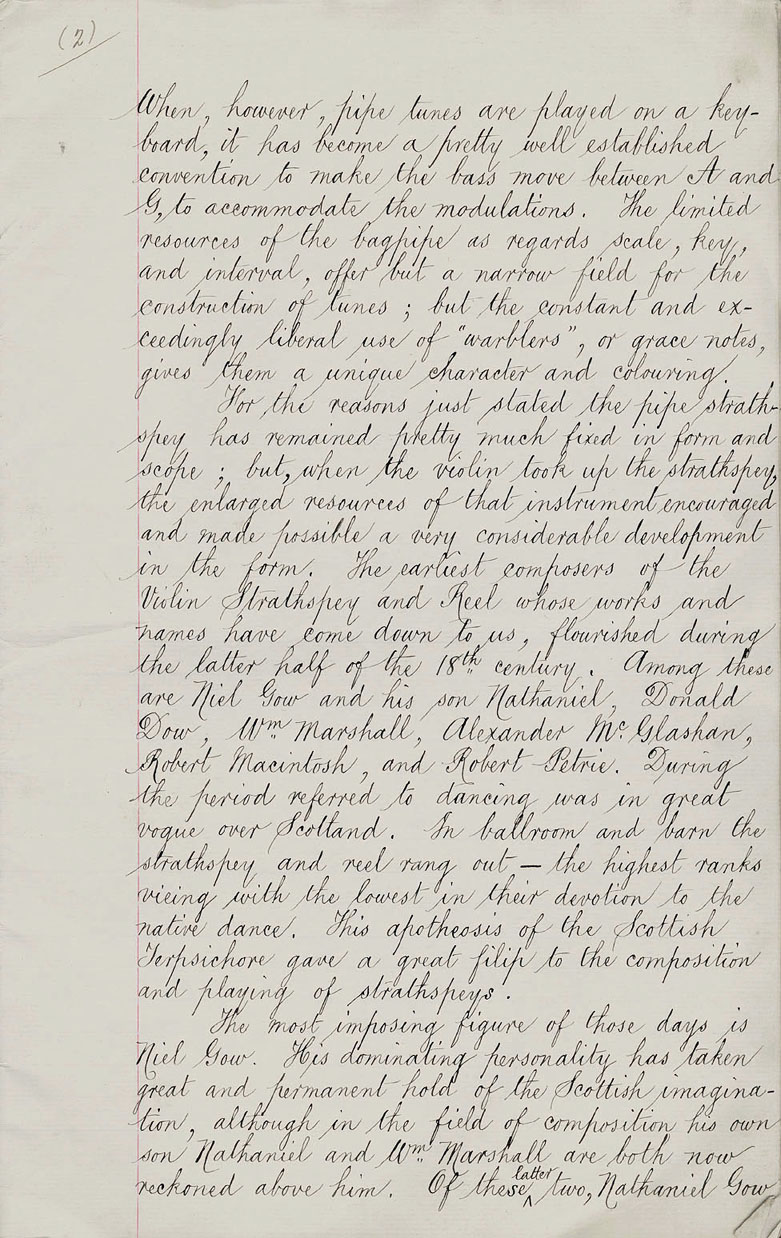 (2)
When, however, pipe tunes are played on a key-
board, it has become a pretty well established
convention to make the bass move between A and
G, to accommodate the modulations. The limited
resources of the bagpipe as regards scale, key,
and interval, offer but a narrow field for the
construction of tunes ; but the constant and ex-
ceedingly liberal use of "warblers", or grace notes,
gives them a unique character and colouring.
For the reasons just stated the pipe strath-
spey has remained pretty much fixed in form and
scope ; but, when the violin took up the strathspey,
the enlarged resources of that instrument encouraged
and made possible a very considerable development
in the form. The earliest composers of the
Violin Strathspey and Reel whose works and
names have come down to us, flourished during
the latter half of the 18th century. Among these
are Niel Gow and his son Nathaniel, Donald
Dow, Wm. Marshall, Alexander Mc. Glashan,
Robert Macintosh, and Robert Petrie. During
the period referred to dancing was in great
vogue over Scotland. In ballroom and barn the
strathspey and reel rang out — the highest ranks
vieing with the lowest in their devotion to the
native dance. This apotheosis of the Scottish
Terpsichore gave a great filip to the composition
and playing of strathspeys.
The most imposing figure of those days is
Niel Gow. His dominating personality has taken
great and permanent hold of the Scottish imagina-
tion, although in the field of composition his own
son Nathaniel and Wm. Marshall are both now
reckoned above him. Of these latter two, Nathaniel Gow